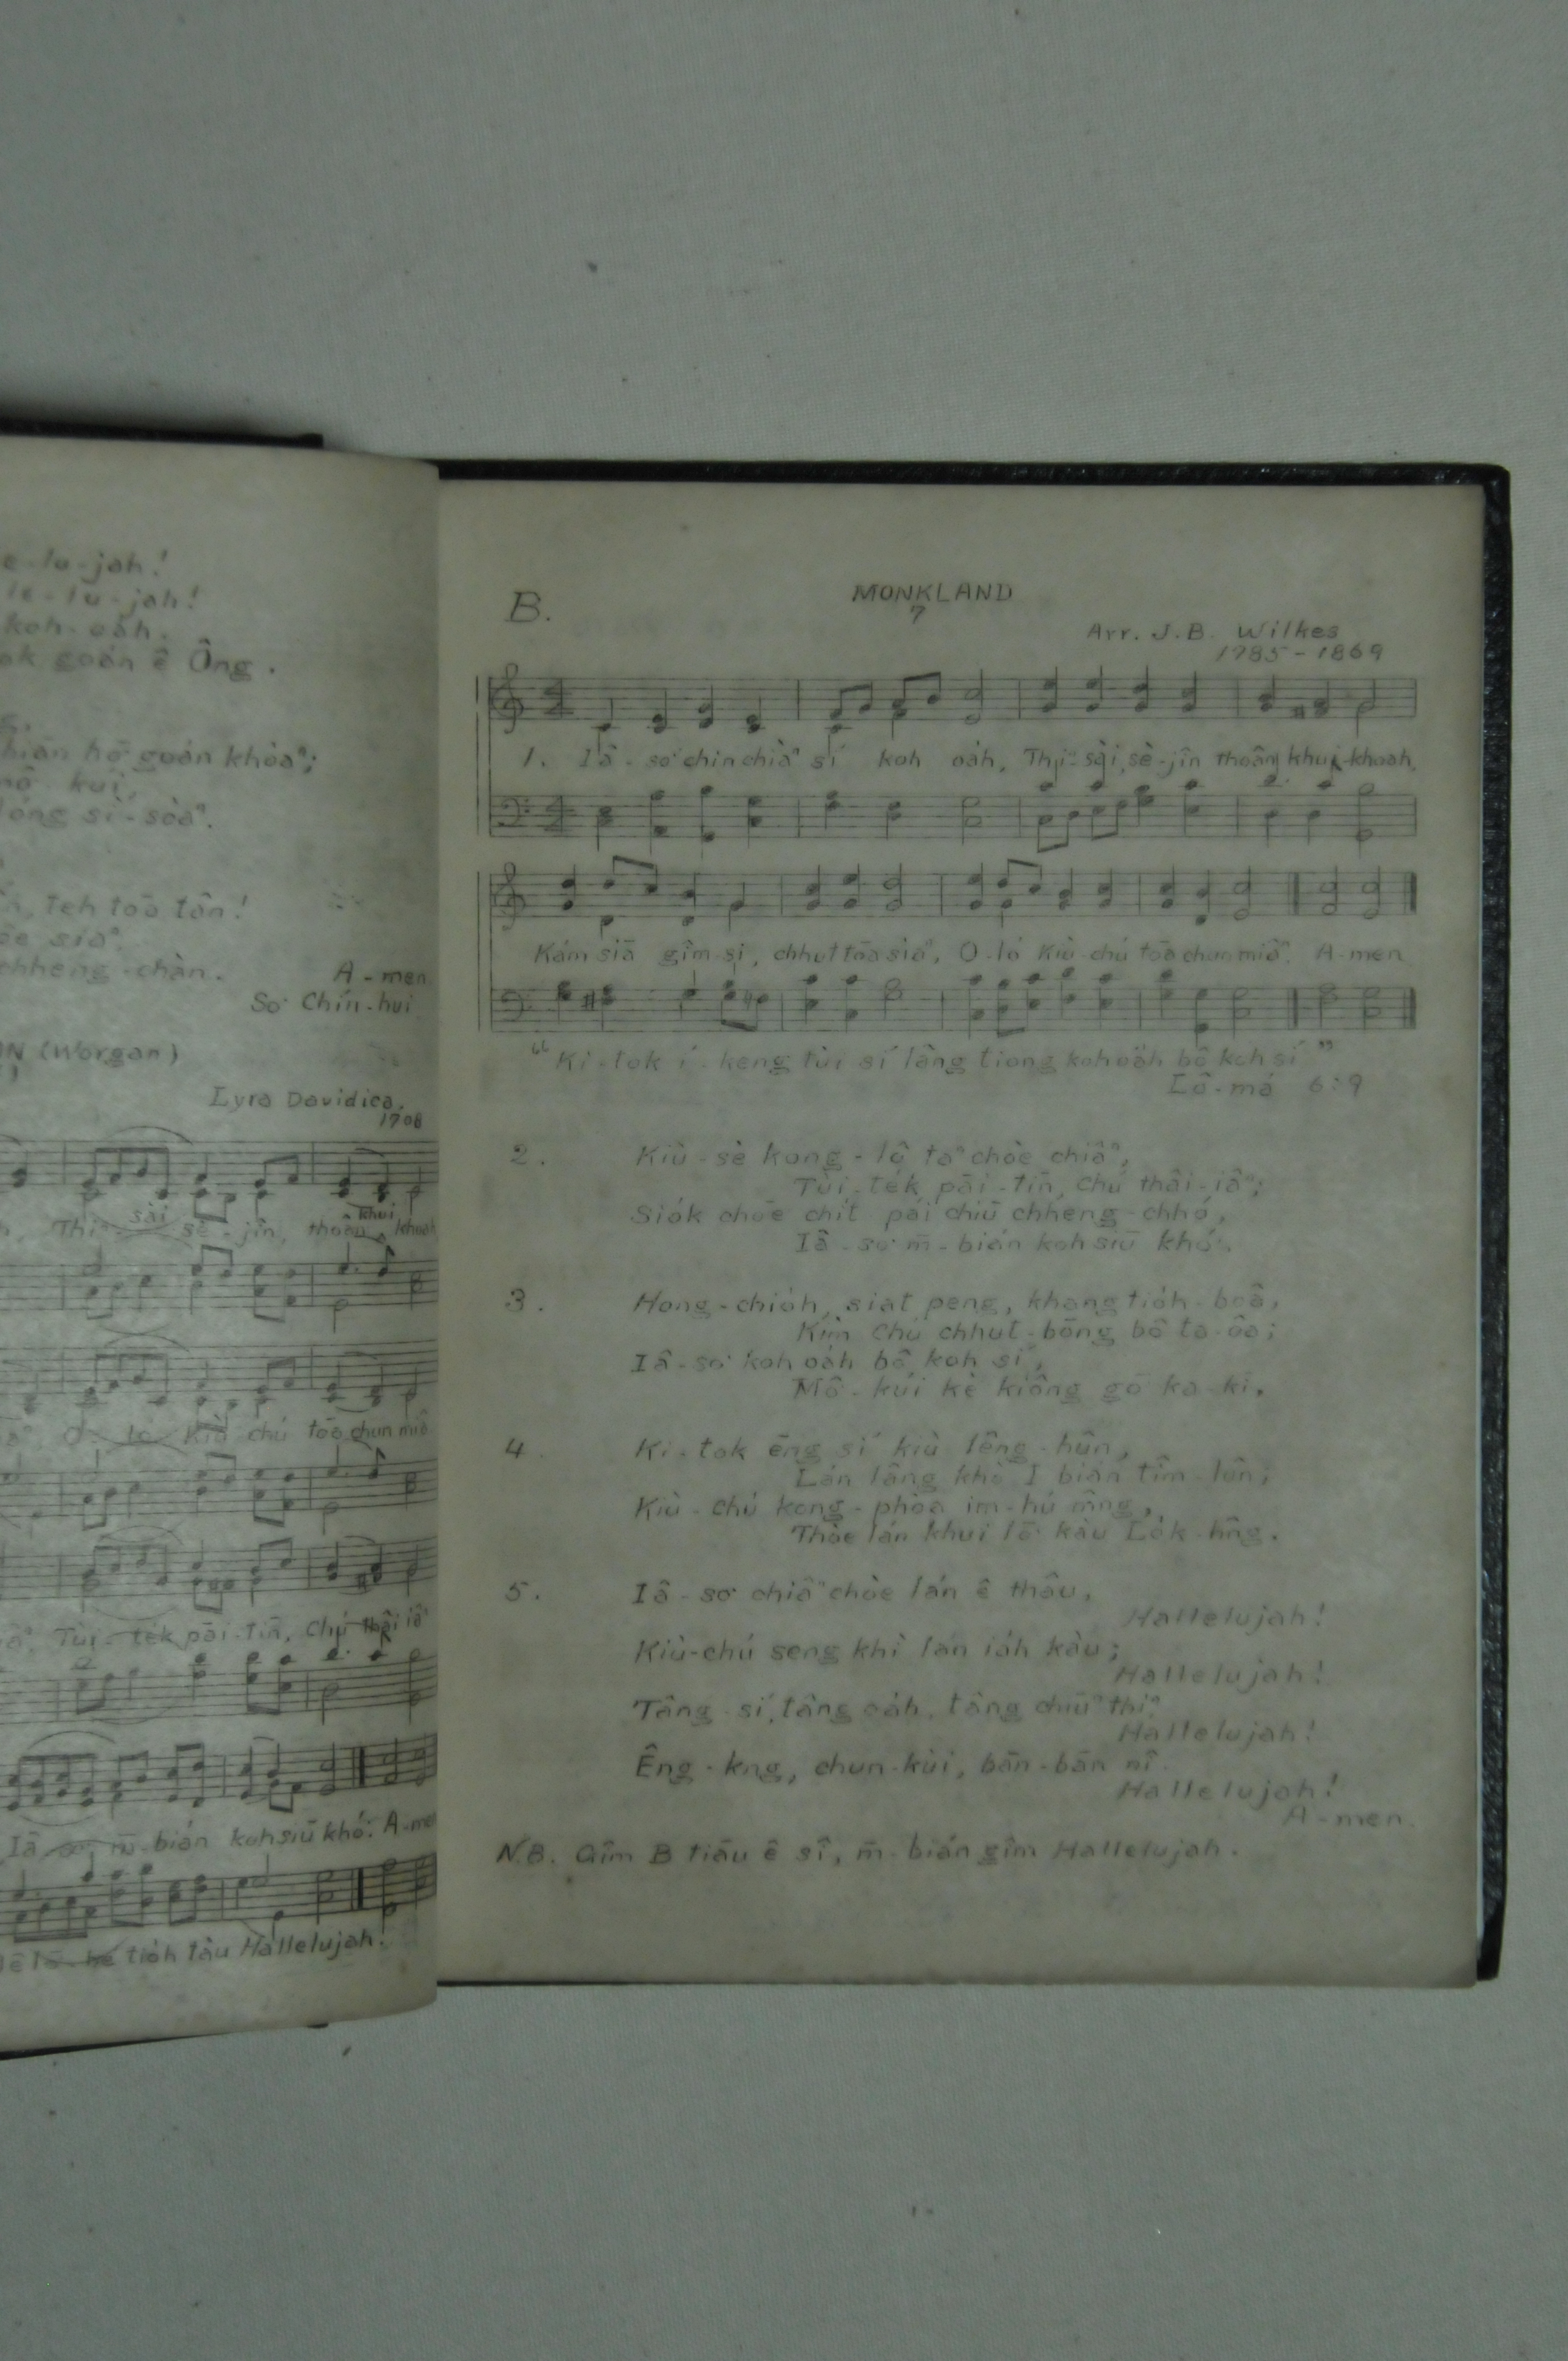 e-lu-jah!
le-lu-jah!
koh-oáh.
goán ê Ông.
hō͘ goán khòaⁿ;
kui,
lóng sì-sòaⁿ.
teh toā tân!
siaⁿ.
chheng-chàn.
A-men
So͘ Chín-hui
(Worgan)
Lyra Davidica,
1708
Thiⁿ-sài sè-jîn, thoân khui khoah
O-ló Kiù chú tōa chun miâ
Tùi-te̍k pāi-tīn, Chú thâi iâⁿ
Iâ-so͘ m̄-bián koh siū khó͘. A-men
tio̍h tàu Hallelujah.
B.
MONKLAND
7
Arr. J.B. Wilkes
1785-1869
1. Iâ-so͘ chin chiàⁿ sí koh oáh, Thiⁿ-sài, sè-jîn thoân khui-khoah,
Kám siā gîm-si, chhut tōa siaⁿ, O-ló Kiù-chú tōa chun miâ. A-men
"Ki-tok í-keng tùi sí lâng tiong koh oáh bô koh sí"
Lô-má 6:9
2. Kiù-sè kong-lô taⁿ chòe chiâⁿ,
Tùi-te̍k pāi-tīn, Chú thâi-iâⁿ;
Siók chōe chit pái chiū chheng-chhó,
Iâ-so͘ m̄-bián koh siū khó͘.
3. Hong-chióh, siat peng, khang tióh-boâ,
Kim Chú chhut-bōng bô ta-ôa;
Iâ-so͘ koh oáh bô koh sí,
Mô͘-kúi kè kiông gō͘ ka-kī.
4. Ki-tok ēng sí kiù lêng-hûn,
Lán lâng khò I bián tîm-lûn;
Kiù-chú kong-phòa im-hú mn̂g,
Thòe lán khui lō͘ kàu Lók-hn̂g.
5. Iâ-so͘ chiâⁿ chòe lán ê thâu,
Hallelujah!
Kiù-chú seng khì lán iáh kàu;
Hallelujah!
Tâng-sí, tâng oáh, tâng chiūⁿ thiⁿ
Hallelujah!
Êng-kng, chun-kùi, bān-bān nî.
Hallelujah!
A-men.
N.B. Gîm B tiāu ê sî, m̄-bián gîm Hallelujah.